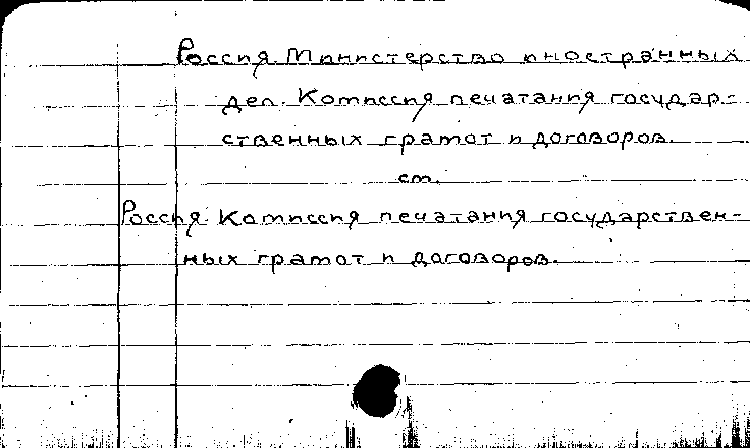 Россия. Министерство иностранных
дел. Комиссия печатания государ-
ственных грамот и договоров.
см.
Россия. Комиссия печатания государствен-
ных грамот и договоров.